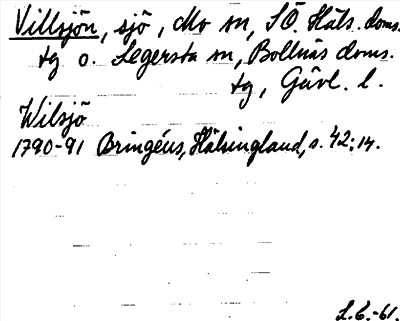 Villsjön, sjö, Mo sn, SÖ. Häls. doms.
tg o. Segersta sn, Bollnäs doms.
tg, Gävl. l.
Wilsjö
1790-91 Bringéus, Hälsingland, s. 42; 14.
S.C.-61.